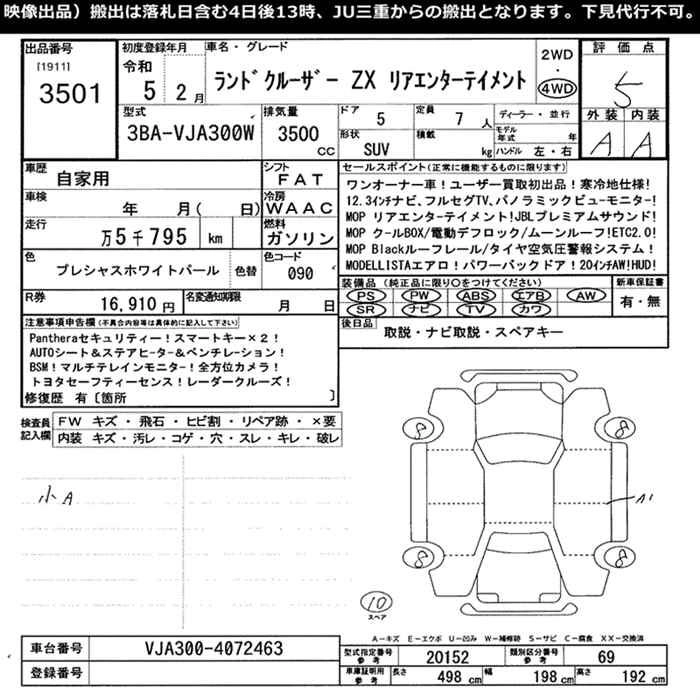 映像出品）搬出は落札日含む4日後13時、JU三重からの搬出となります。下見代行不可。
出品番号
[1911]
3501
初度登録年月
令和
5 2月
車名・グレード
ランドクルーザー ZX リアエンターテイメント
2WD
・
4WD
評価点
5
外装 内装
A A
型式
3BA-VJA300W
排気量
3500
CC
ドア 5
形状
SUV
定員 7人
積載 kg
ディーラー・並行
モデル年式 年
ハンドル 左・右
車歴
自家用
シフト
FAT
車検
年 月( 日)
冷房
WAAC
走行
万5千795 km
燃料
ガソリン
色
プレシャスホワイトパール
色替
色コード
090
R券
16,910円
名変通知期限
月 日
セールスポイント(正常に機能するものに限ります)
ワンオーナー車！ユーザー買取初出品！寒冷地仕様！
12.3インチナビ、フルセグTV、パノラミックビューモニター！
MOP リアエンターテイメント！JBLプレミアムサウンド！
MOP クールBOX/電動デフロック/ムーンルーフ！ETC2.0！
MOP Blackルーフレール/タイヤ空気圧警報システム！
MODELLISTAエアロ！パワーバックドア！20インチAW！HUD！
装備品（純正品に限り○をつけてください）
PS PW ABS エアB AW
SR ナビ TV カワ
新車保証書
有・無
後日品
取説・ナビ取説・スペアキー
注意事項申告欄(不具合内容等は具体的に記入して下さい)
Pantheraセキュリティー！スマートキー×2！
AUTOシート＆ステアヒーター＆ベンチレーション！
BSM！マルチテレインモニター！全方位カメラ！
トヨタセーフティーセンス！レーダークルーズ！
修復歴 有〔箇所 〕
検査員記入欄
FW キズ・飛石・ヒビ割・リペア跡・×要
内装 キズ・汚レ・コゲ・穴・スレ・キレ・破レ
小A
8 8
A1
8 8
10
スペア
A－キズ E－エクボ U－凹み W－補修跡 S－サビ C－腐食 XX－交換済
車台番号
VJA300-4072463
登録番号
型式指定番号参考
20152
類別区分番号参考
69
車庫証明用参考
長さ 498 cm
幅 198 cm
高さ 192 cm